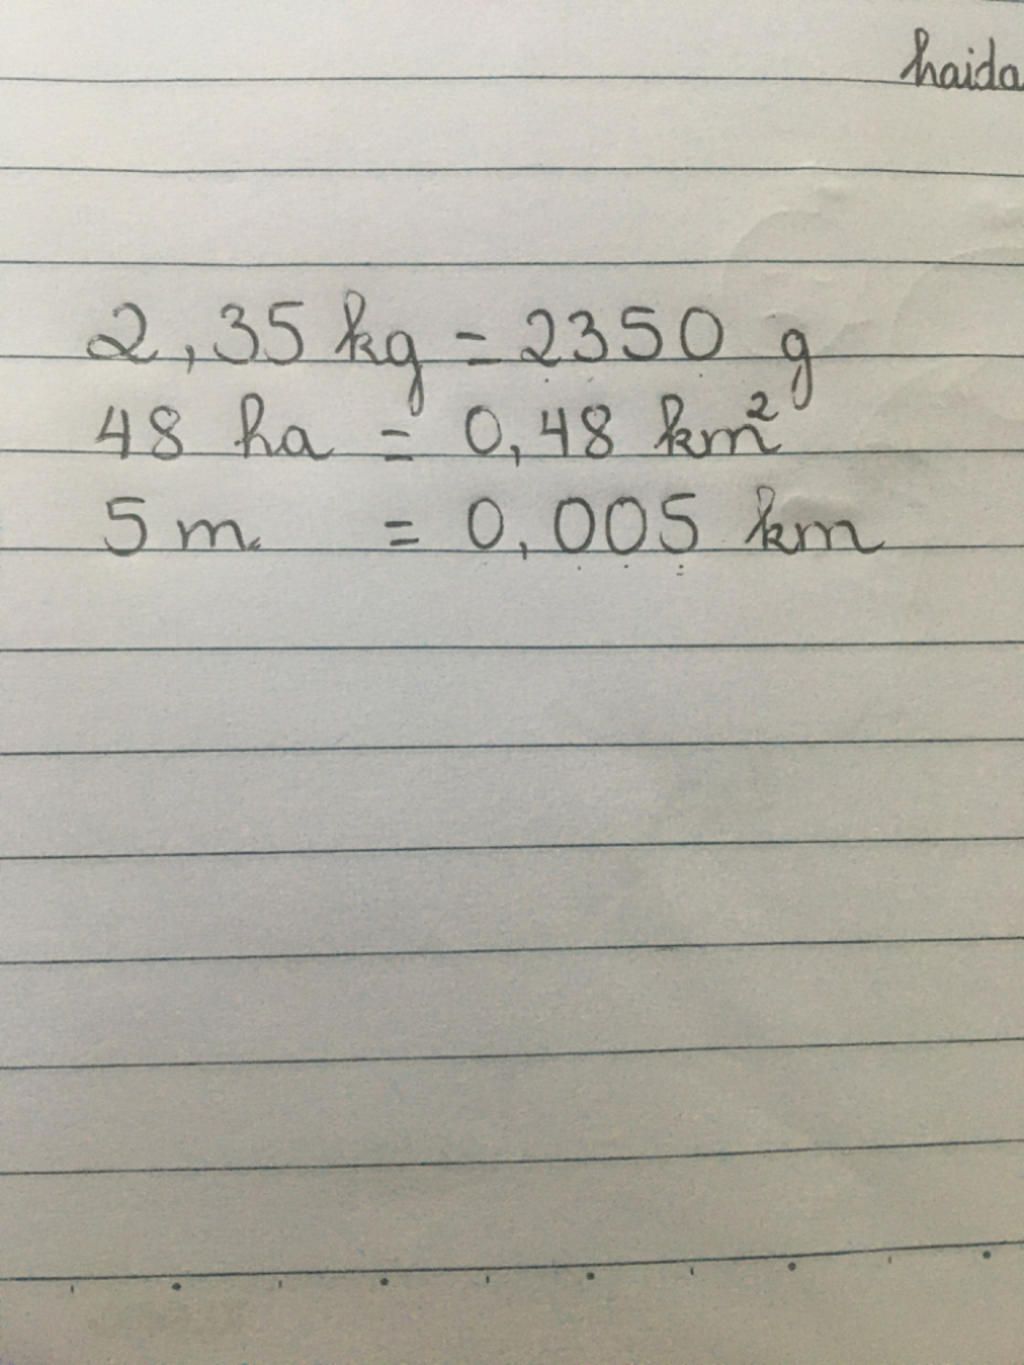 haida
2,35 kg = 2350 g
48 ha = 0,48 km²
5 m. = 0,005 km